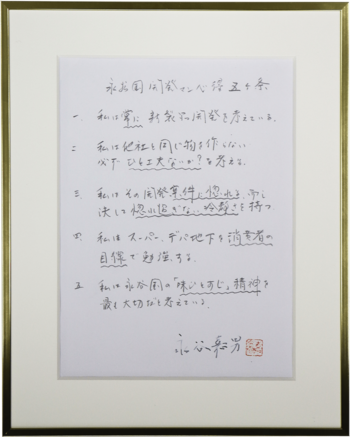 永谷園開発マンへ 偣 五ヶ条
一、私は常に新製品開発を考えている。
二 私は他社と同じ物を作らない
必ず ひと工夫ないか？を考える。
三、私はその開発案件に惚れる、而し
決して惚れ過ぎない冷静さを持つ
四、私はスーパー、デパ地下を消費者の
目線で勉強する。
五 私は永谷園の「味ひとすじ」精神を
最も大切だと考えている。
永谷 男